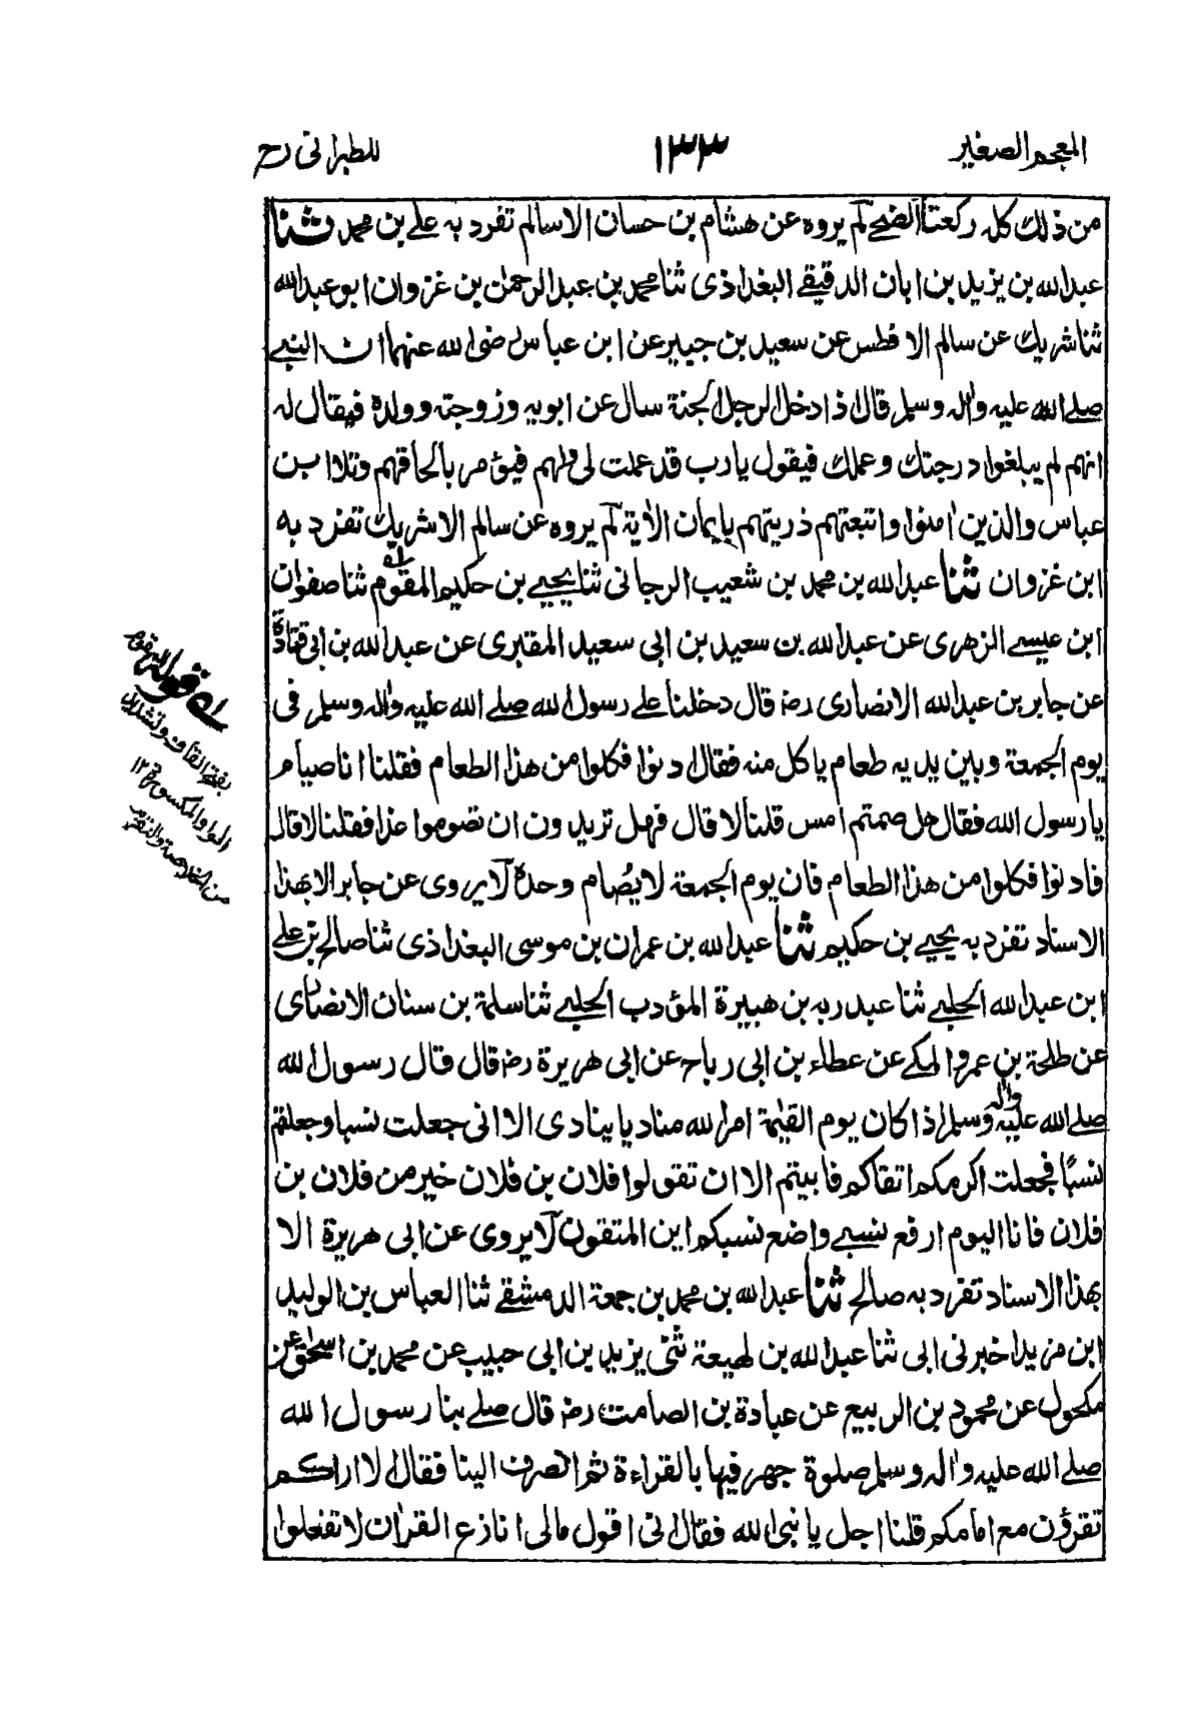 المعجم الصغير ١٣٣ للطبرانی رح
من ذلك كله ركعتا الضحے لم يروه عن هشام بن حسان الا سالم تفرد به علے بن محمد ثنا
عبدالله بن يزيد بن ابان الدقيقے البغداذی ثنا محمد بن عبدالرحمٰن بن غزوان ابو عبدالله
ثنا شريك عن سالم الافطس عن سعيد بن جبير عن ابن عباس رضی الله عنهما ان النبے
صلے الله عليه واٰله وسلم قال اذا دخل الرجل الجنة سال عن ابويه وزوجته وولده فيقال له
انهم لم يبلغوا درجتك وعملك فيقول يارب قد عملت لی ولهم فيؤمر بالحاقهم وتلا ابن
عباس والذين اٰمنوا واتبعتهم ذريتهم بايمان الاٰية لم يروه عن سالم الا شريك تفرد به
ابن غزوان ثنا عبدالله بن محمد بن شعيب الرجانی ثنا يحيے بن حكيم المقوم ثنا صفوان
ابن عيسے الزهری عن عبدالله بن سعيد بن ابی سعيد المقبری عن عبدالله بن ابی قتادة
عن جابر بن عبدالله الانصاری رضہ قال دخلنا علے رسول الله صلے الله عليه واٰله وسلم فی
يوم الجمعة وبين يديه طعام ياكل منه فقال ادنوا فكلوا من هذا الطعام فقلنا انا صيام
يا رسول الله فقال هل صمتم امس قلنا لا قال فهل تريدون ان تصوموا غدا فقلنا لا قال
فادنوا فكلوا من هذا الطعام فان يوم الجمعة لا يُصام وحدهٗ لا يروی عن جابر الا بهذا
الاسناد تفرد به يحيے بن حكيم ثنا عبدالله بن عمران بن موسی البغداذی ثنا صالح بن علے
ابن عبدالله الحلبے ثنا عبد ربه بن هبيرة المؤدب الحلبے ثنا سلمة بن سنان الانصاری
عن طلحة بن عمرو المكے عن عطاء بن ابی رباح عن ابی هريرة رضہ قال قال رسول الله
صلے الله عليه واٰله وسلم اذا كان يوم القيٰمة امر الله مناديا ينادی الا انی جعلت نسبا وجعلتم
نسبًا فجعلت اكرمكم اتقاكم فابيتم الا ان تقولوا فلان بن فلان خير من فلان بن
فلان فانا اليوم ارفع نسبے واضع نسبكم اين المتقون لا يروی عن ابی هريرة الا
بهذا الاسناد تفرد به صالح ثنا عبدالله بن محمد بن جمعة الدمشقے ثنا العباس بن الوليد
ابن مزيد اخبرنی ابی ثنا عبدالله بن لهيعة ثنی يزيد بن ابی حبيب عن محمد بن اسحٰق عن
مكحول عن محمود بن الربيع عن عبادة بن الصامت رضہ قال صلے بنا رسول الله
صلے الله عليه واٰله وسلم صلوة جهر فيها بالقراءة ثم انصرف الينا فقال الا اراكم
تقرؤن مع امامكم قلنا اجل يا نبی الله فقال انی اقول مالی انازع القراٰن لا تفعلوا
لـه قوله المقوم
بفتح القاف وتشديد
الواو المكسورة ١٢
من الخلاصة والتقريب